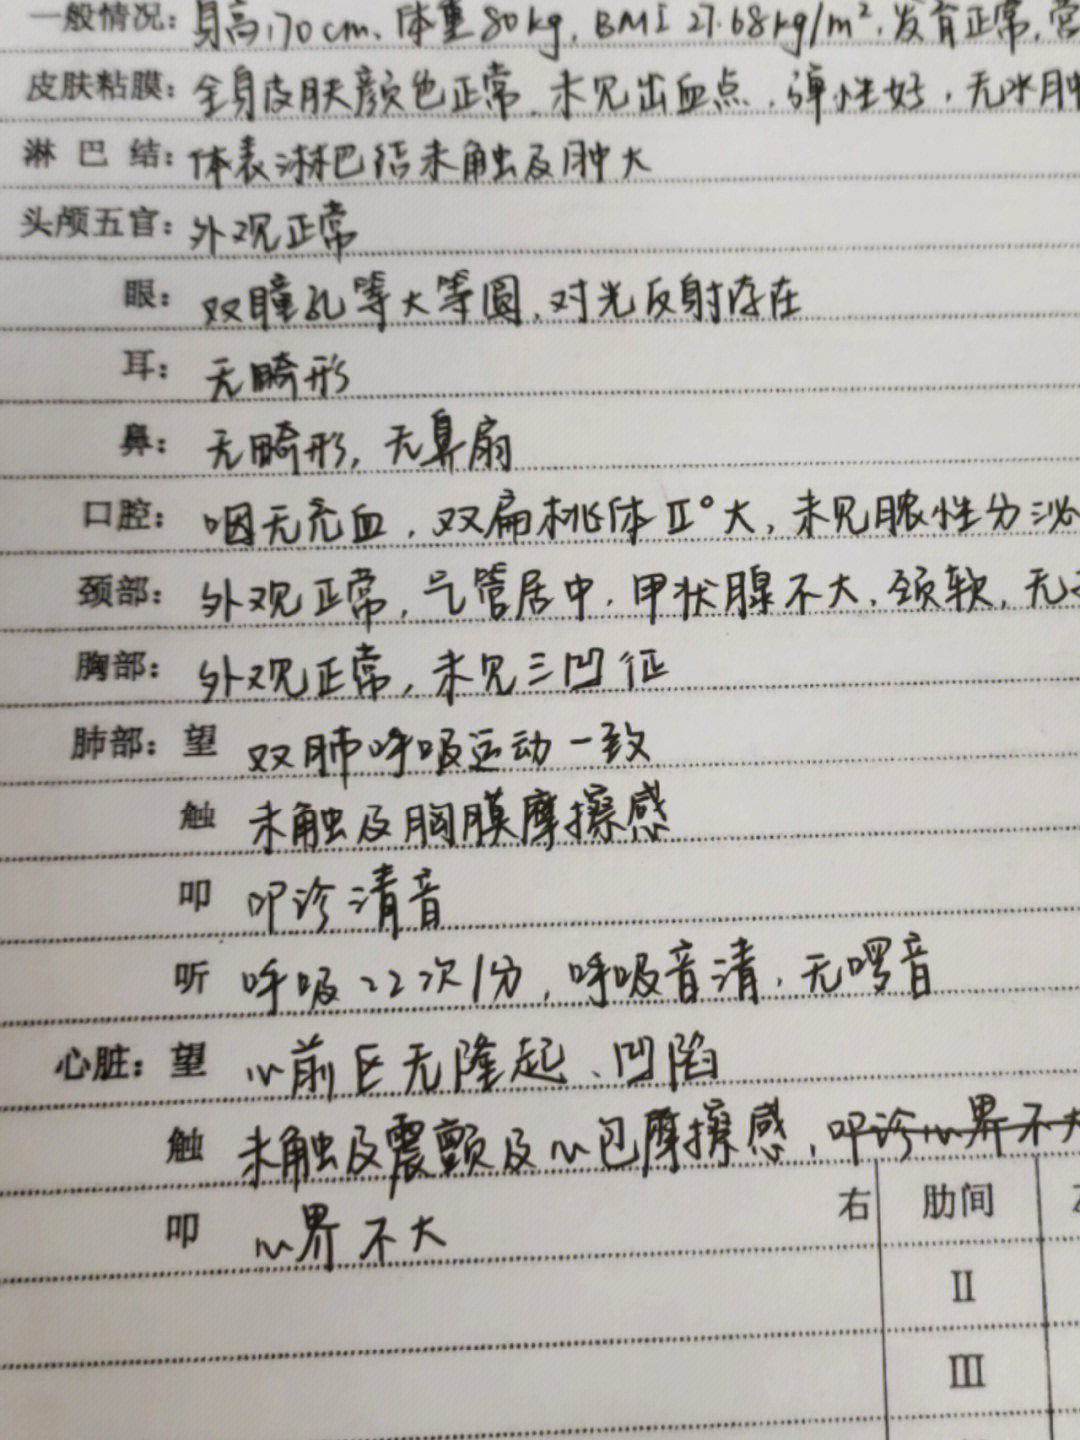 一般情况：身高170cm、体重80kg，BMI 27.68kg/m²，发育正常，营
皮肤粘膜：全身皮肤颜色正常，未见出血点，弹性好，无水肿
淋巴结：体表淋巴结未触及肿大
头颅五官：外观正常
眼：双瞳孔等大等圆，对光反射存在
耳：无畸形
鼻：无畸形，无鼻扇
口腔：咽无充血，双扁桃体Ⅱ°大，未见脓性分泌
颈部：外观正常，气管居中，甲状腺不大，颈软，无
胸部：外观正常，未见三凹征
肺部：望 双肺呼吸运动一致
触 未触及胸膜摩擦感
叩 叩诊清音
听 呼吸22次/分，呼吸音清，无啰音
心脏：望 心前区无隆起、凹陷
触 未触及震颤及心包摩擦感，叩诊心界不大
叩 心界不大
右 肋间
Ⅱ
Ⅲ